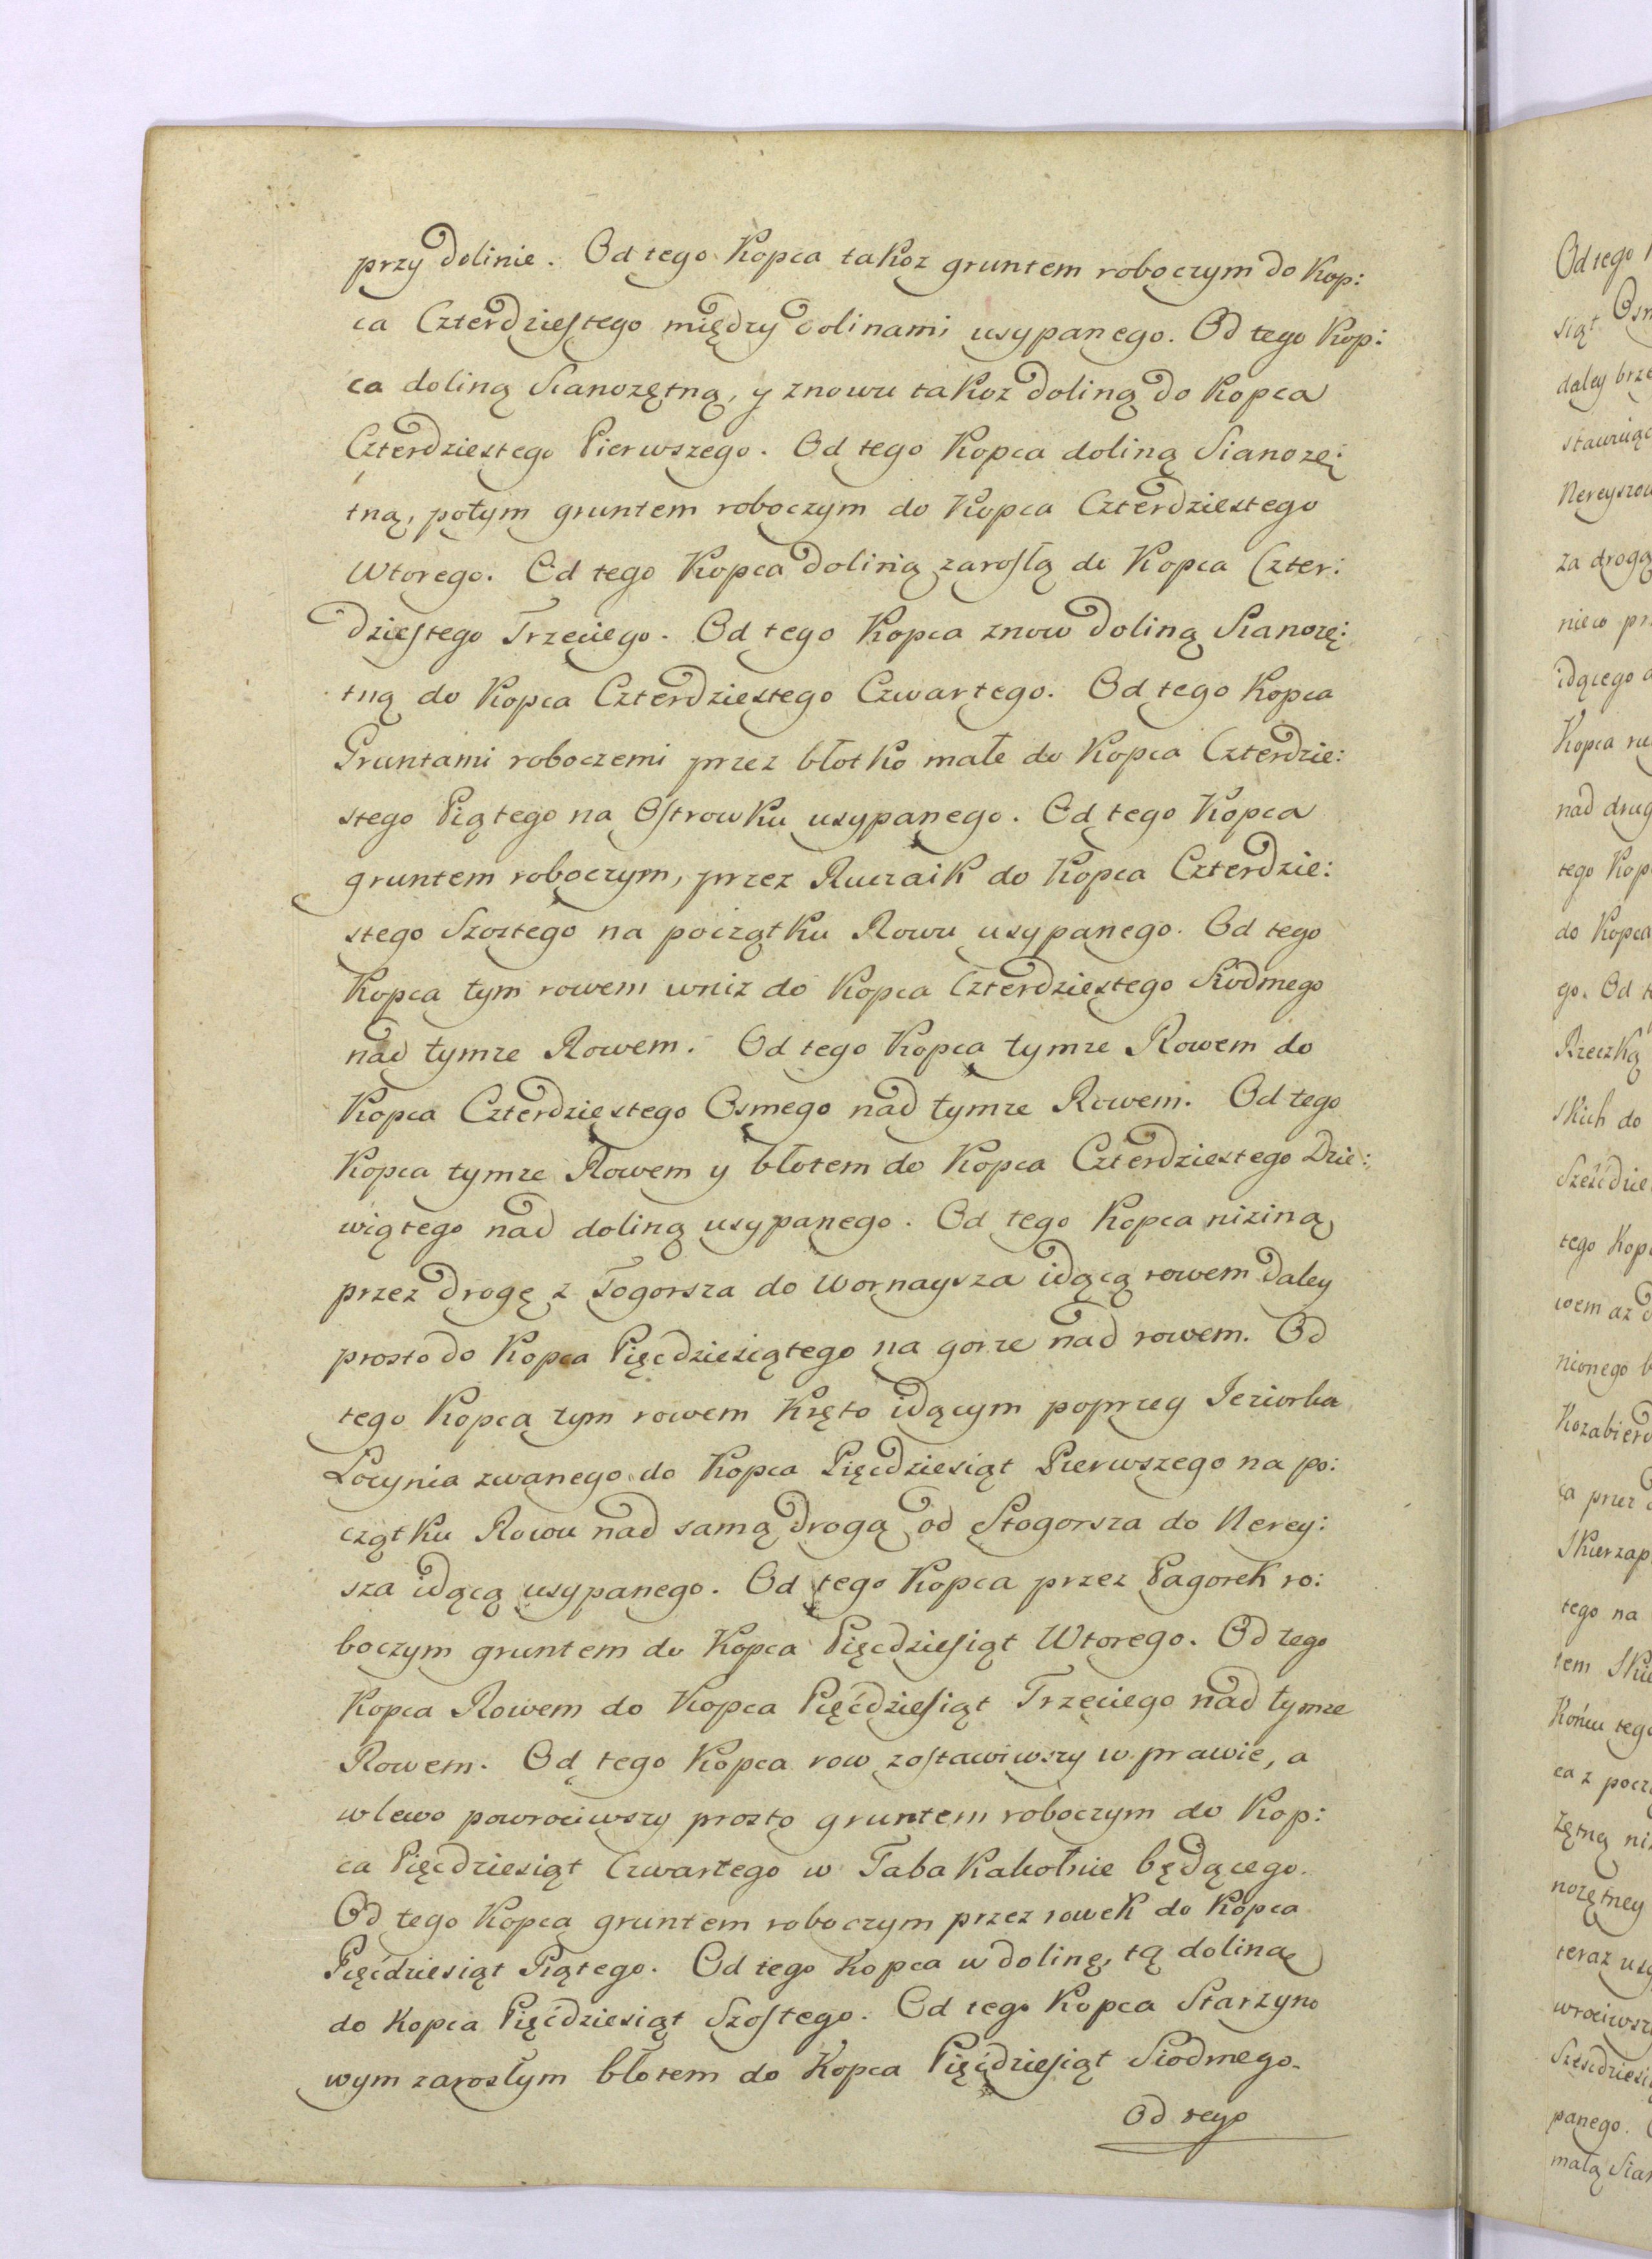 przy dolinie. Od tego Kopca takoz gruntem roboczym do Kop:
ca Czterdziestego między dolinami usypanego. Od tego Kop:
ca doliną Sianozętną, y znowu takoz doliną do Kopca
Czterdziestego Pierwszego. Od tego Kopca doliną Sianozę:
tną, potym gruntem roboczym do Kopca Czterdziestego
Wtorego. Od tego Kopca doliną zarosłą do Kopca Czter:
dziestego Trzeciego. Od tego Kopca znow doliną Sianozę:
tną do Kopca Czterdziestego Czwartego. Od tego Kopca
Gruntami roboczemi przez błotko małe do Kopca Czterdzie:
stego Piątego na Ostrowku usypanego. Od tego Kopca
gruntem roboczym, przez Ruczaik do Kopca Czterdzie:
stego Szostego na początku Rowu usypanego. Od tego
Kopca tym rowem wniz do Kopca Czterdziestego Siodmego
nad tymze Rowem. Od tego Kopca tymze Rowem do
Kopca Czterdziestego Osmego nad tymze Rowem. Od tego
Kopca tymze Rowem y błotem do Kopca Czterdziestego Dzie:
wiątego nad doliną usypanego. Od tego Kopca niziną
przez drogę z Togorsza do Wornaysza idącą rowem daley
prosto do Kopca Pięcdziesiątego na gorze nad rowem. Od
tego Kopca tym rowem kręto idącym poprzeg Jeziorka
Locynia zwanego do Kopca Pięcdziesiąt Pierwszego na po:
czątku Rowu nad samą drogą od Stogorsza do Nerey:
sza idącą usypanego. Od tego Kopca przez Pagorek ro:
boczym gruntem do Kopca Pięcdziesiąt Wtorego. Od tego
Kopca Rowem do Kopca Pięćdziesiąt Trzeciego nad tymze
Rowem. Od tego Kopca row zostawiwszy w prawie, a
w lewo powrociwszy prosto gruntem roboczym do Kop:
ca Pięcdziesiąt Czwartego w Tabakałkołnie będącego.
Od tego Kopca gruntem roboczym przez rowek do Kopca
Pięćdziesiąt Piątego. Od tego Kopca w dolinę, tą doliną
do Kopca Pięćdziesiąt Szostego. Od tego Kopca Starzyno
wym zarosłym błotem do Kopca Pięćdziesiąt Siodmego.
Od tego
Od tego
siąt Osm
daley brze
stawuąc
Nereyszow
za drogą
niew
idącego
Kopca
nad drug
tego Kop
do Kopca
go. Od
Rzeczką
skich do
Sześćdzie
tego Kop
wem az
nionego
Kozabierd
ca przez
Skierzap
tego na
tem
Końcu tego
ca z pocz
zętną
nozętney
teraz
wrociwsz
Szescdziesi
panego.
małą Sian